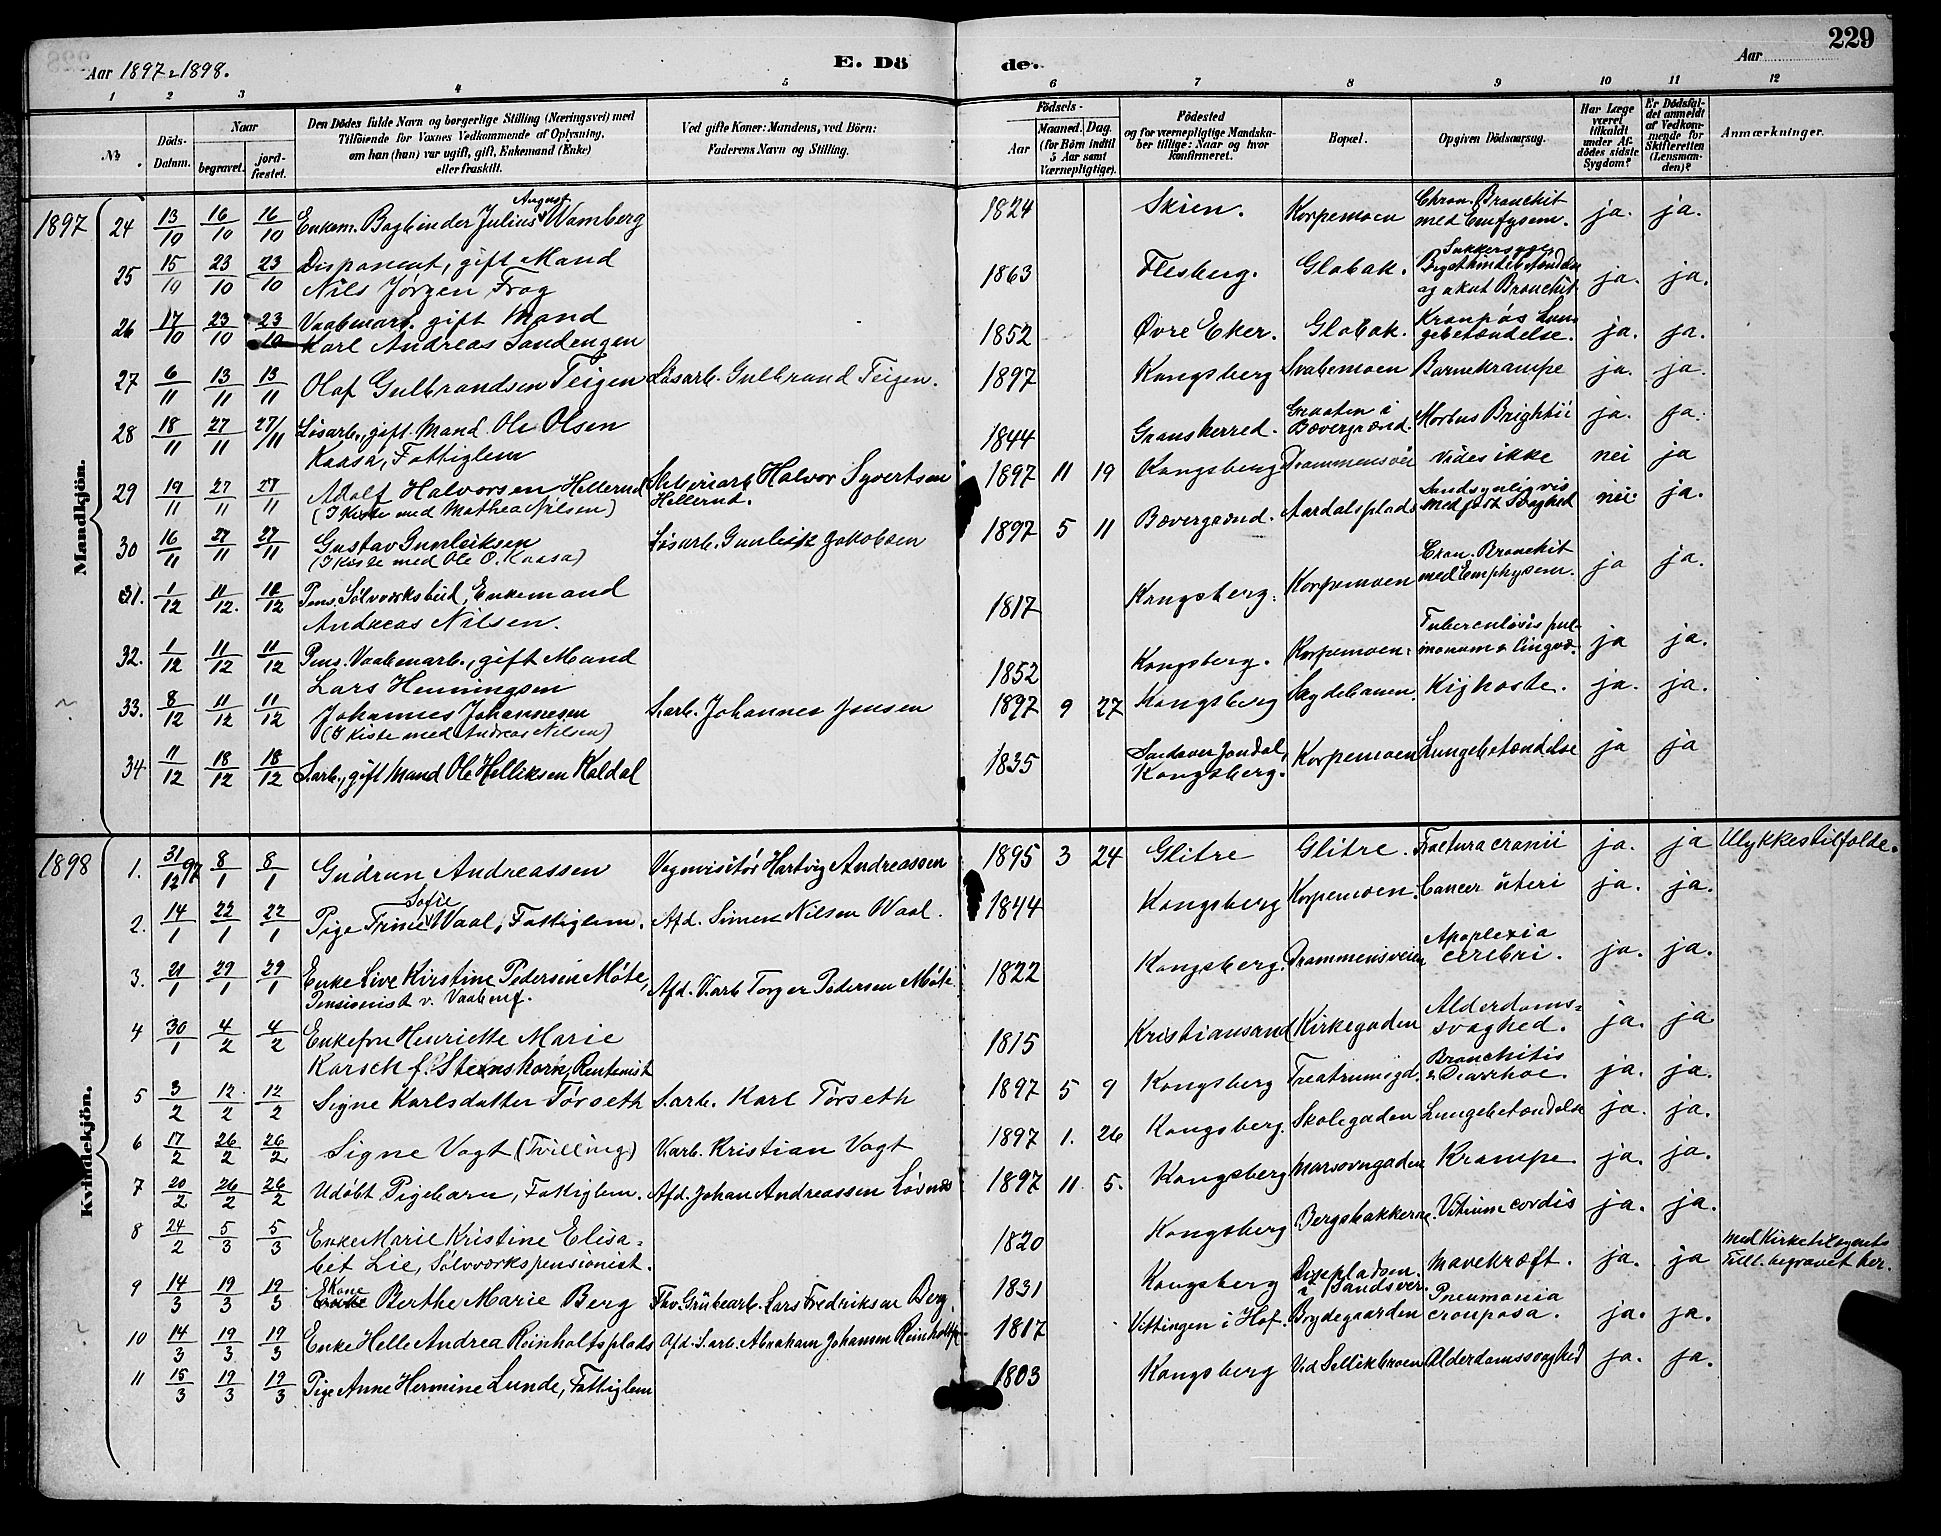 229
Aar 1897-1898.
E. Dö
de.
Aar
1 2 3 4 5 6 7 8 9 10 11 12
No.
Döds-Datum.
Naar
begravet.
jord-fæstet.
Den Dödes fulde Navn og borgerlige Stilling (Næringsvei) med
Tilföiende for Voxnes Vedkommende af Oplysning,
om han (hun) var ugift, gift, Enkemand (Enke)
eller fraskilt.
Ved gifte Koner: Mandens, ved Börn:
Faderens Navn og Stilling.
Födsels-
Aar
Maaned. Dag.
(for Börn indtil
5 Aar samt
Værnepligtige).
Födested
og for værnepligtige Mandska-
ber tillige: Naar og hvor
konfirmeret.
Bopæl.
Opgiven Dödsaarsag.
Har Læge
været
tilkaldt
under Af-
dödes sidste
Sygdom?
Er Dödsfal-
det anmeldt
af Vedkom-
mende for
Skifteretten
(Lensman-
den)?
Anmærkninger.
Mandkjön.
1897 24 13/10 16/10 16/10 Enkem. Bogbinder Julius August Wamberg 1824 Skien. Korpemoen Chron. Bronchit med Emfysem. ja. ja.
25 15/10 23/10 23/10 Disponent, gift Mand
Nils Jørgen Frog 1863 Flesberg. Glabak. Sukkersyge Brysthindebetændelse og akut Bronchit ja. ja.
26 17/10 23/10 23/10 Vaabenarb. gift Mand
Karl Andreas Sandengen 1852 Øvre Eker. Glabak. Krupøs Lungebetændelse. ja. ja.
27 6/11 13/11 13/11 Olaf Gulbrandsen Teigen Løsarb. Gulbrand Teigen. 1897 Kongsberg Svabemoen Barnekrampe ja. ja.
28 18/11 27/11 27/11 Løsarb., gift Mand Ole Olsen
Kaasa, Fattiglem 1844 Gransherred. Graaten i Bævergrænd. Morbus Brightii ja. ja.
29 19/11 27/11 27/11 Adolf Halvorsen Hellerud
(I Kiste med Mathea Nilsen) Halvor Syvertsen Hellerud. 1897 11 19 Kongsberg Drammensvei vides ikke nei ja
30 16/11 27/11 27/11 Gustav Gunleiksen
(I Kiste med Ole O. Kaasa) Løsarb. Gunleik Jakobsen 1897 5 11 Bævergrænd. Aardalsplads Sandsynligvis medfødt Svaghed nei. ja.
31. 1/12 11/12. 11/12 Pens. Sølvverksbud, Enkemand
Andreas Nilsen. 1817 Kongsberg. Korpemoen Cron. Bronchit med Emphysem. ja ja.
32. 1/12 11/12 11/12 Pens. Vaabenarb., gift Mand
Lars Henningsen 1852 Kongsberg. Korpemoen. Tuberculosis pulmonum & lingvæ. ja ja.
33. 8/12 11/12 11/12 Johannes Johannesen
(I Kiste med Andreas Nilsen) S.arb. Johannes Jensen 1897 9 27 Kongsberg Kighoste. ja. ja.
34 11/12 18/12 18/12 S.arb., gift Mand Ole Helliksen Koldal 1835 Jondal, Kongsberg. Korpemoen Lungebetændelse ja ja
Kvindekjön.
1898 1. 31/12 97 8/1 8/1 Gudrun Andreassen Vognvisitør Hartvig Andreassen 1895 3 24 Glitre Glitre. Fractura cranii ja. ja Ulykkestilfælde.
2. 14/1 22/1 22/1 Pige Trine Sofie Waal, Fattiglem. Afd. Simen Nilsen Waal. 1844 Kongsberg Korpemoen. Cancer uteri ja. ja.
3. 21/1 29/1 29/1 Enke Live Kirstine Pedersen Møte,
Pensionist v. Vaabenf. Afd. V.arb. Torger Pedersen Møte 1822 Kongsberg. Drammensveien Apoplexia cerebri. ja. ja.
4 30/1 4/2 4/2 Enkefru Henriette Marie
Karsch f. Stenshorn, Rentenist 1815 Kristiansand Kirkegaden Alderdomssvaghed. ja. ja
5 3/2 12/2 12/2 Signe Karlsdatter Tørseth S.arb. Karl Tørseth 1897 5 9 Kongsberg Teatrumsgd. Bronchitis & Diarrhoe. ja. ja.
6 17/2 26/2 26/2 Signe Vogt (Tvilling) V.arb. Kristian Vogt 1897 1. 26 Kongsberg. Skolegaden Lungebetændelse ja. ja.
7 20/2 26/2 26/2 Udøbt Pigebarn, Fattiglem. Afd. Johan Andreassen Løvnes 1897 11 5. Kongsberg Marsovngaden Krampe ja. ja.
8 24/2 5/3 5/3 Enke Marie Kristine Elisa-
bet Lie, Sølvverkspensionist. 1820 Kongsberg Bergsbakkerne. Vitium cordis ja. ja.
9 14/3 19/3 19/3 Kone Berthe Marie Berg Fhv. Grubearb. Lars Fredriksen Berg. 1831 Kongsberg i Sandsver. Mavekræft. ja. ja med Kirketilsynets Till. begravet her.
10 14/3 19/3 19/3 Enke Helle Andrea Reinholtsplads Afd. S.arb. Abraham Johansen Reinholtspl. 1817 Vittingen i Hof. Brydegaarden Pneumonia crouposa. ja. ja.
11 15/3 19/3 19/3 Pige Anne Hermine Lunde, Fattiglem 1803 Kongsberg Ved Sellikbroen Alderdomssvaghed ja. ja.